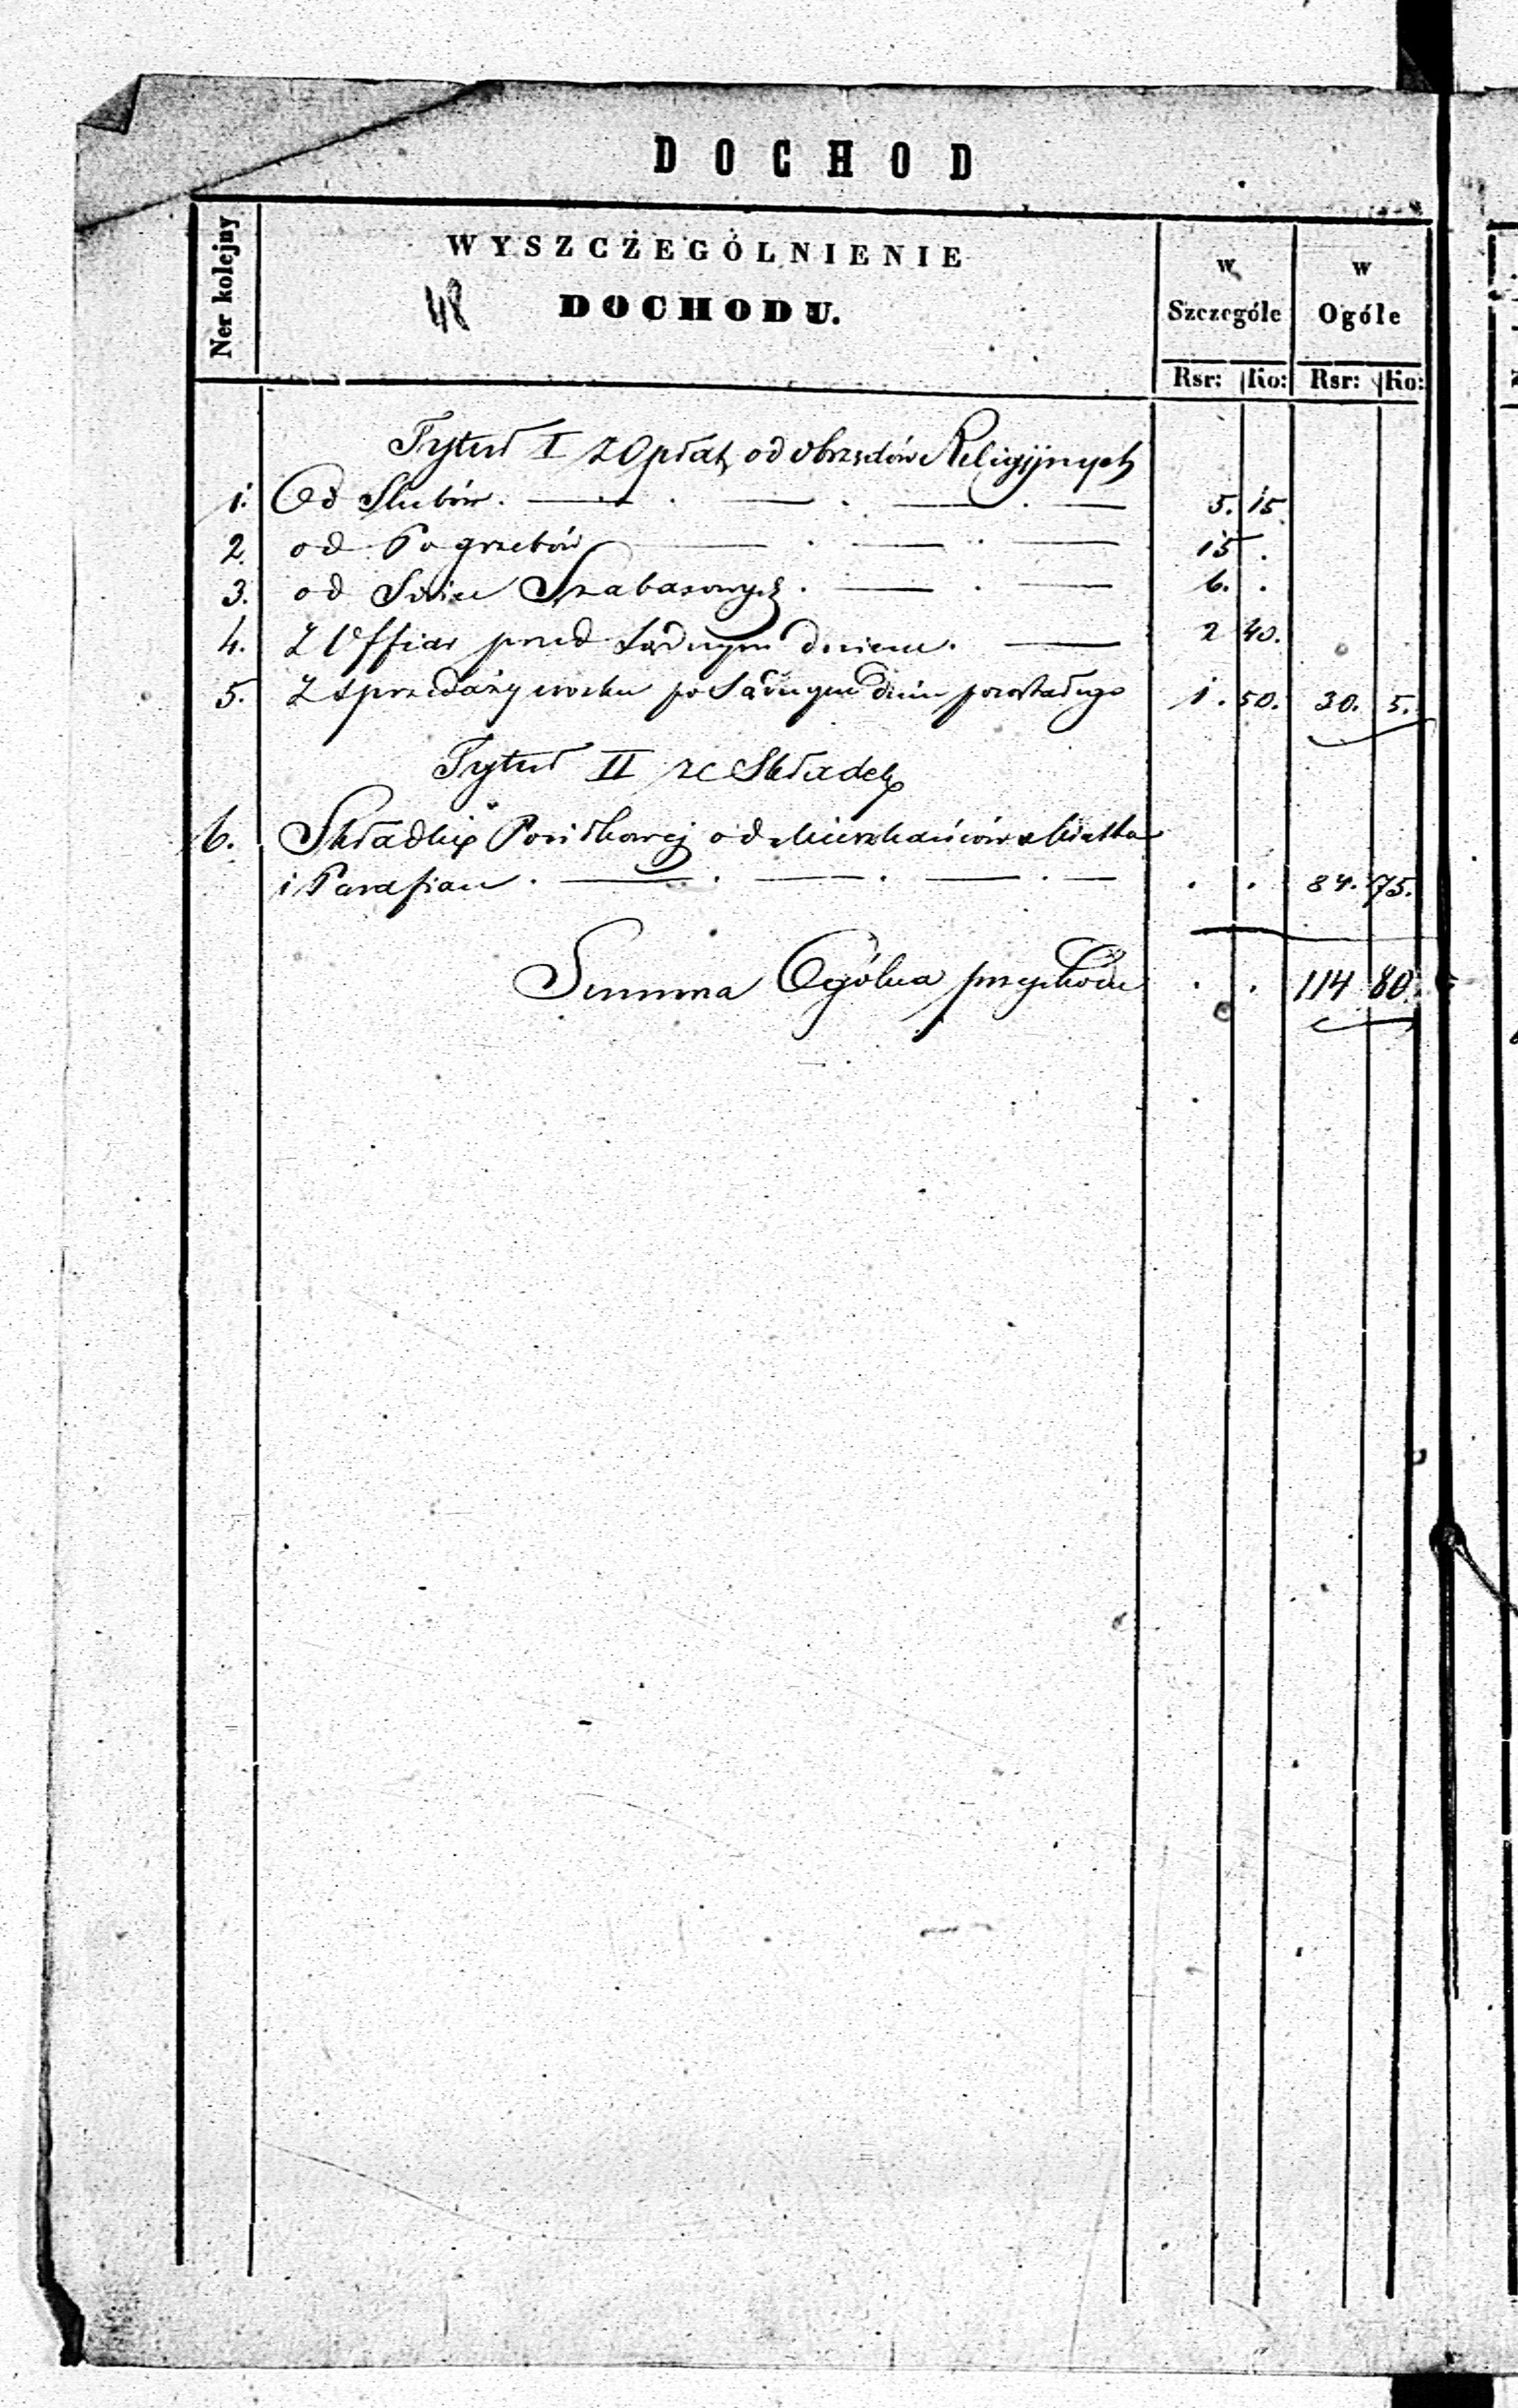 DOCHOD
Ner kolejny
WYSZCZEGÓLNIENIE
DOCHODU.
48
w Szczególe
w Ogóle
Rsr: Ko: Rsr: Ko:
Tytuł I z Opłat od obrzędów Religijnych
1. Od Slubów. 5. 15.
2. od Pogrzebów 15 .
3. od Swiec Szabasowych. 6. .
4. Z Offiar przed Sądnym dniem. 2 40.
5. Z sprzedaży wosku po Sądnym dniu pozostałego 1. 50. 30. 5.
Tytuł II ze Składek
6. Składki od Mieszkańców Miasta
i Parafian . . . 84. 75.
Summa Ogólna przychodu . . 114 80.